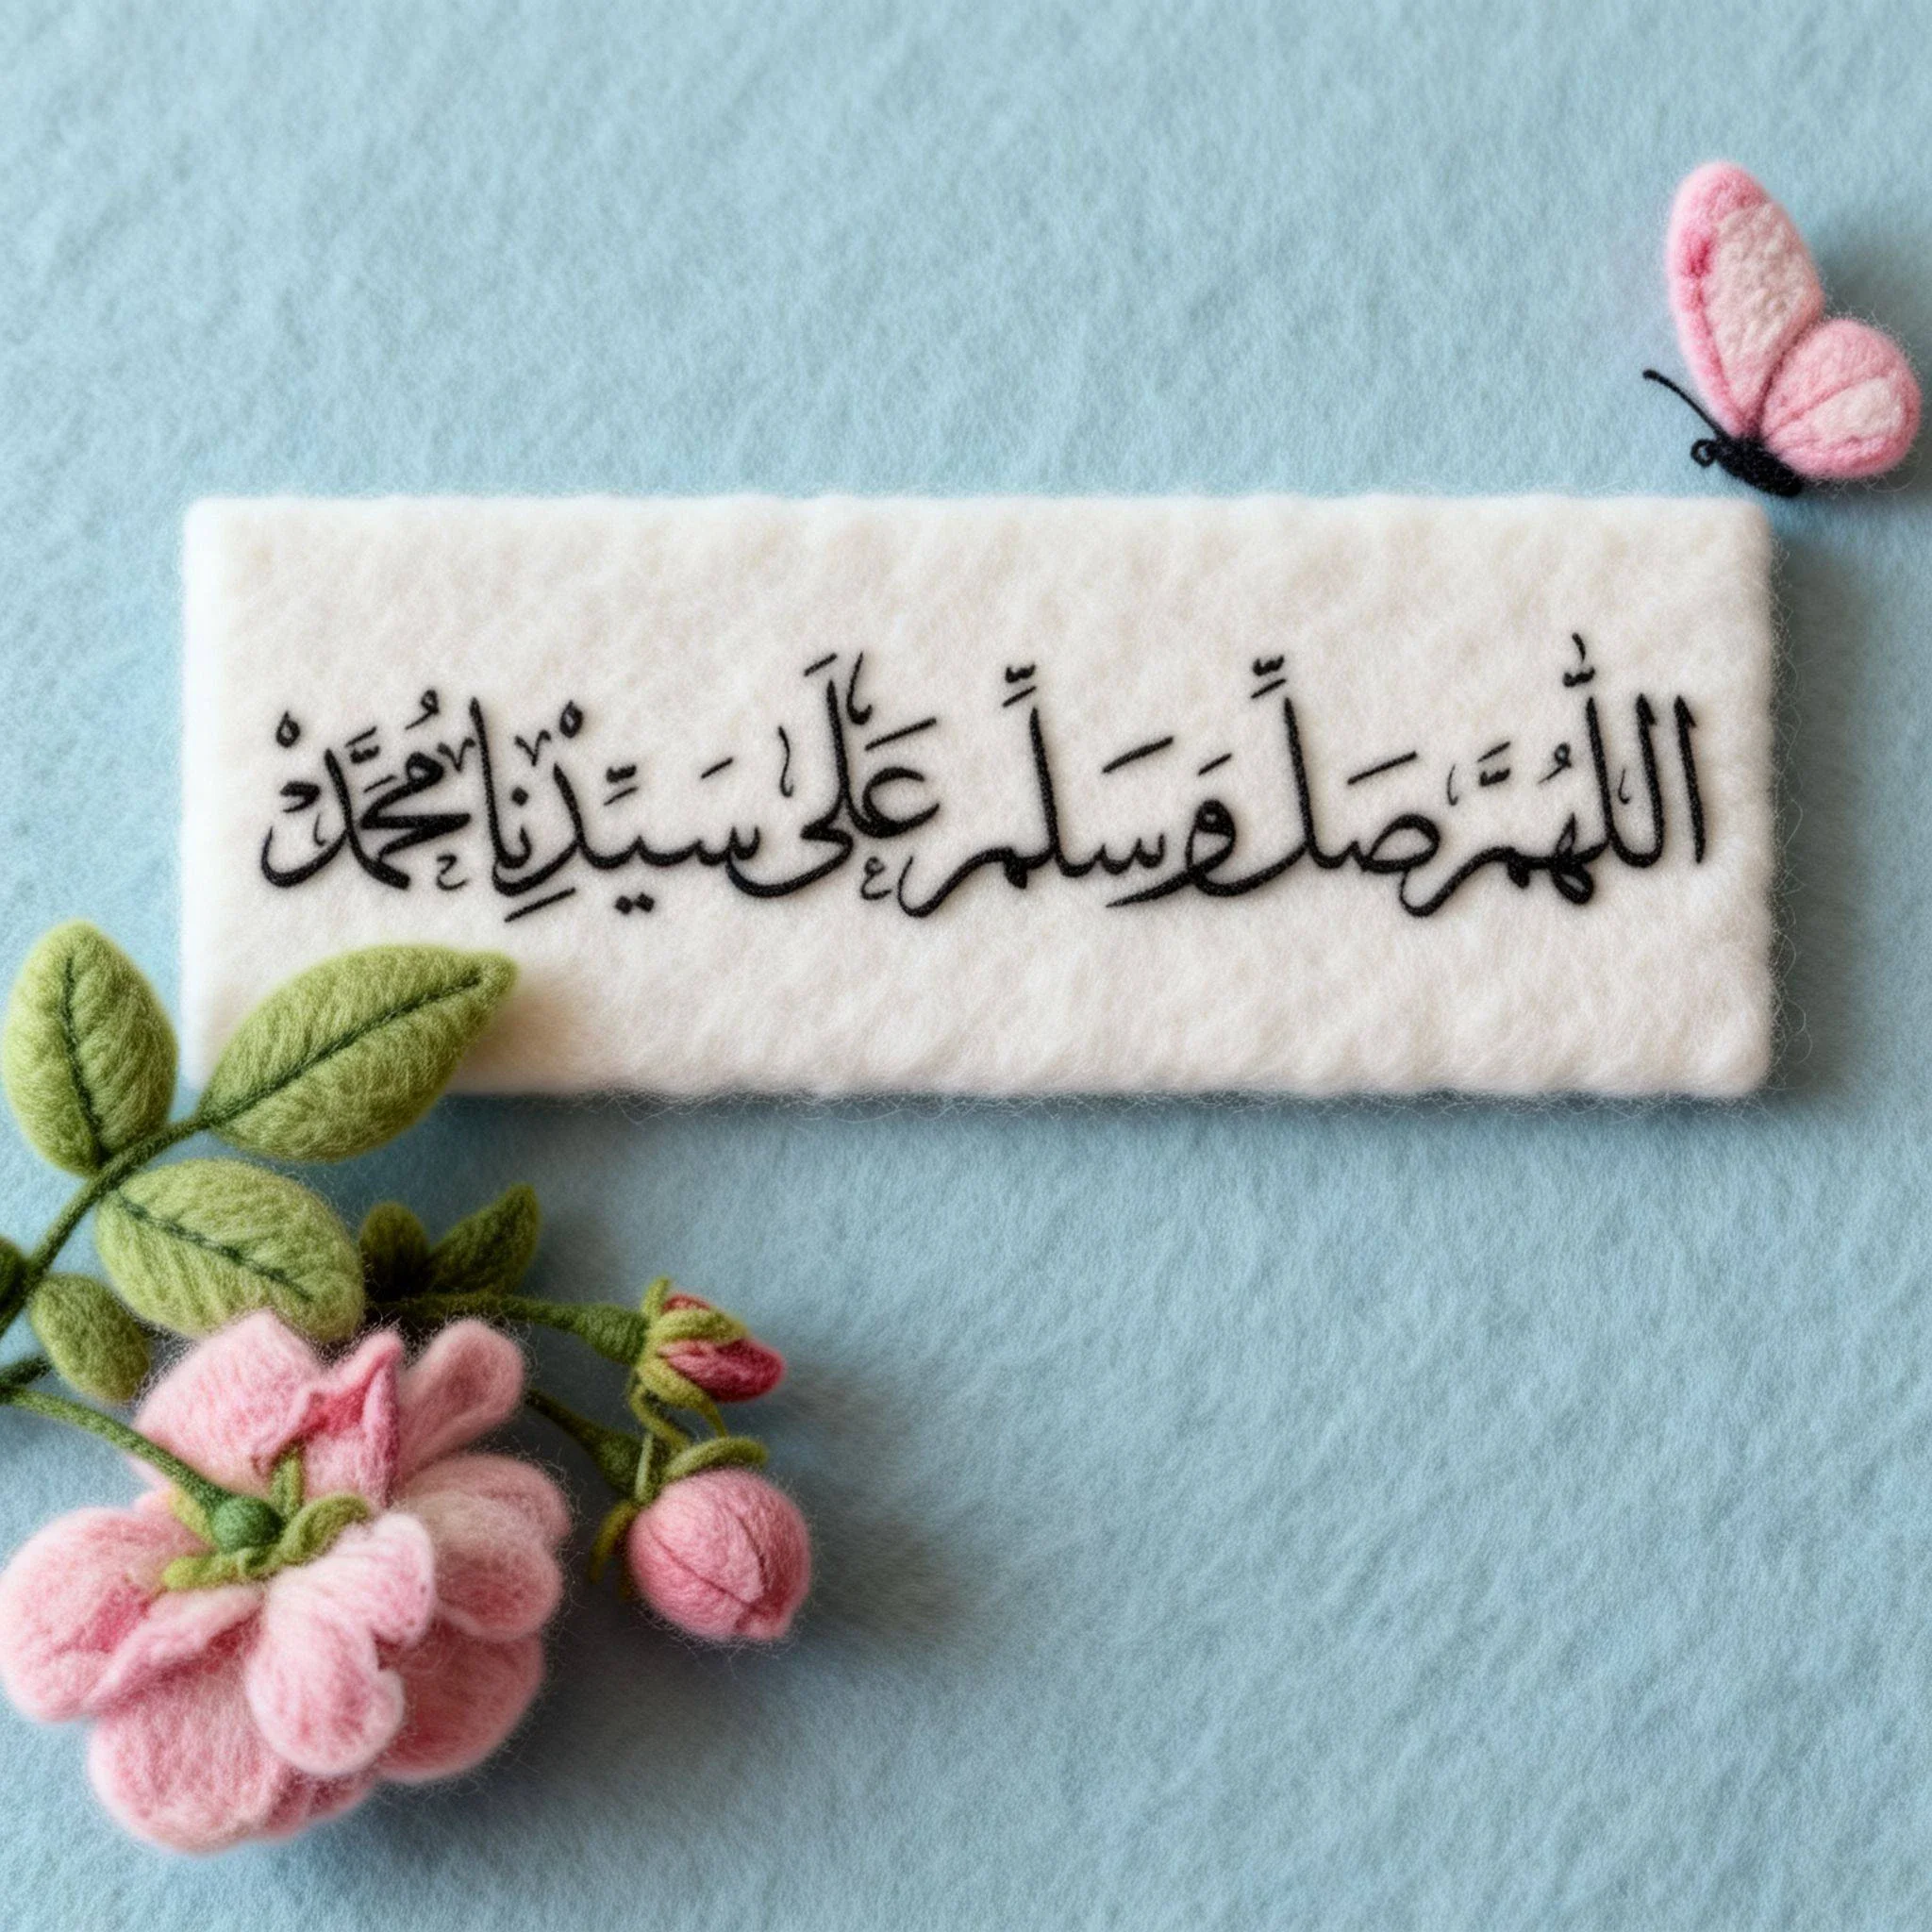 اللّٰهُمَّ صَلِّ وَسَلِّم عَلَى سَيِّدِنَا مُحَمَّدْ